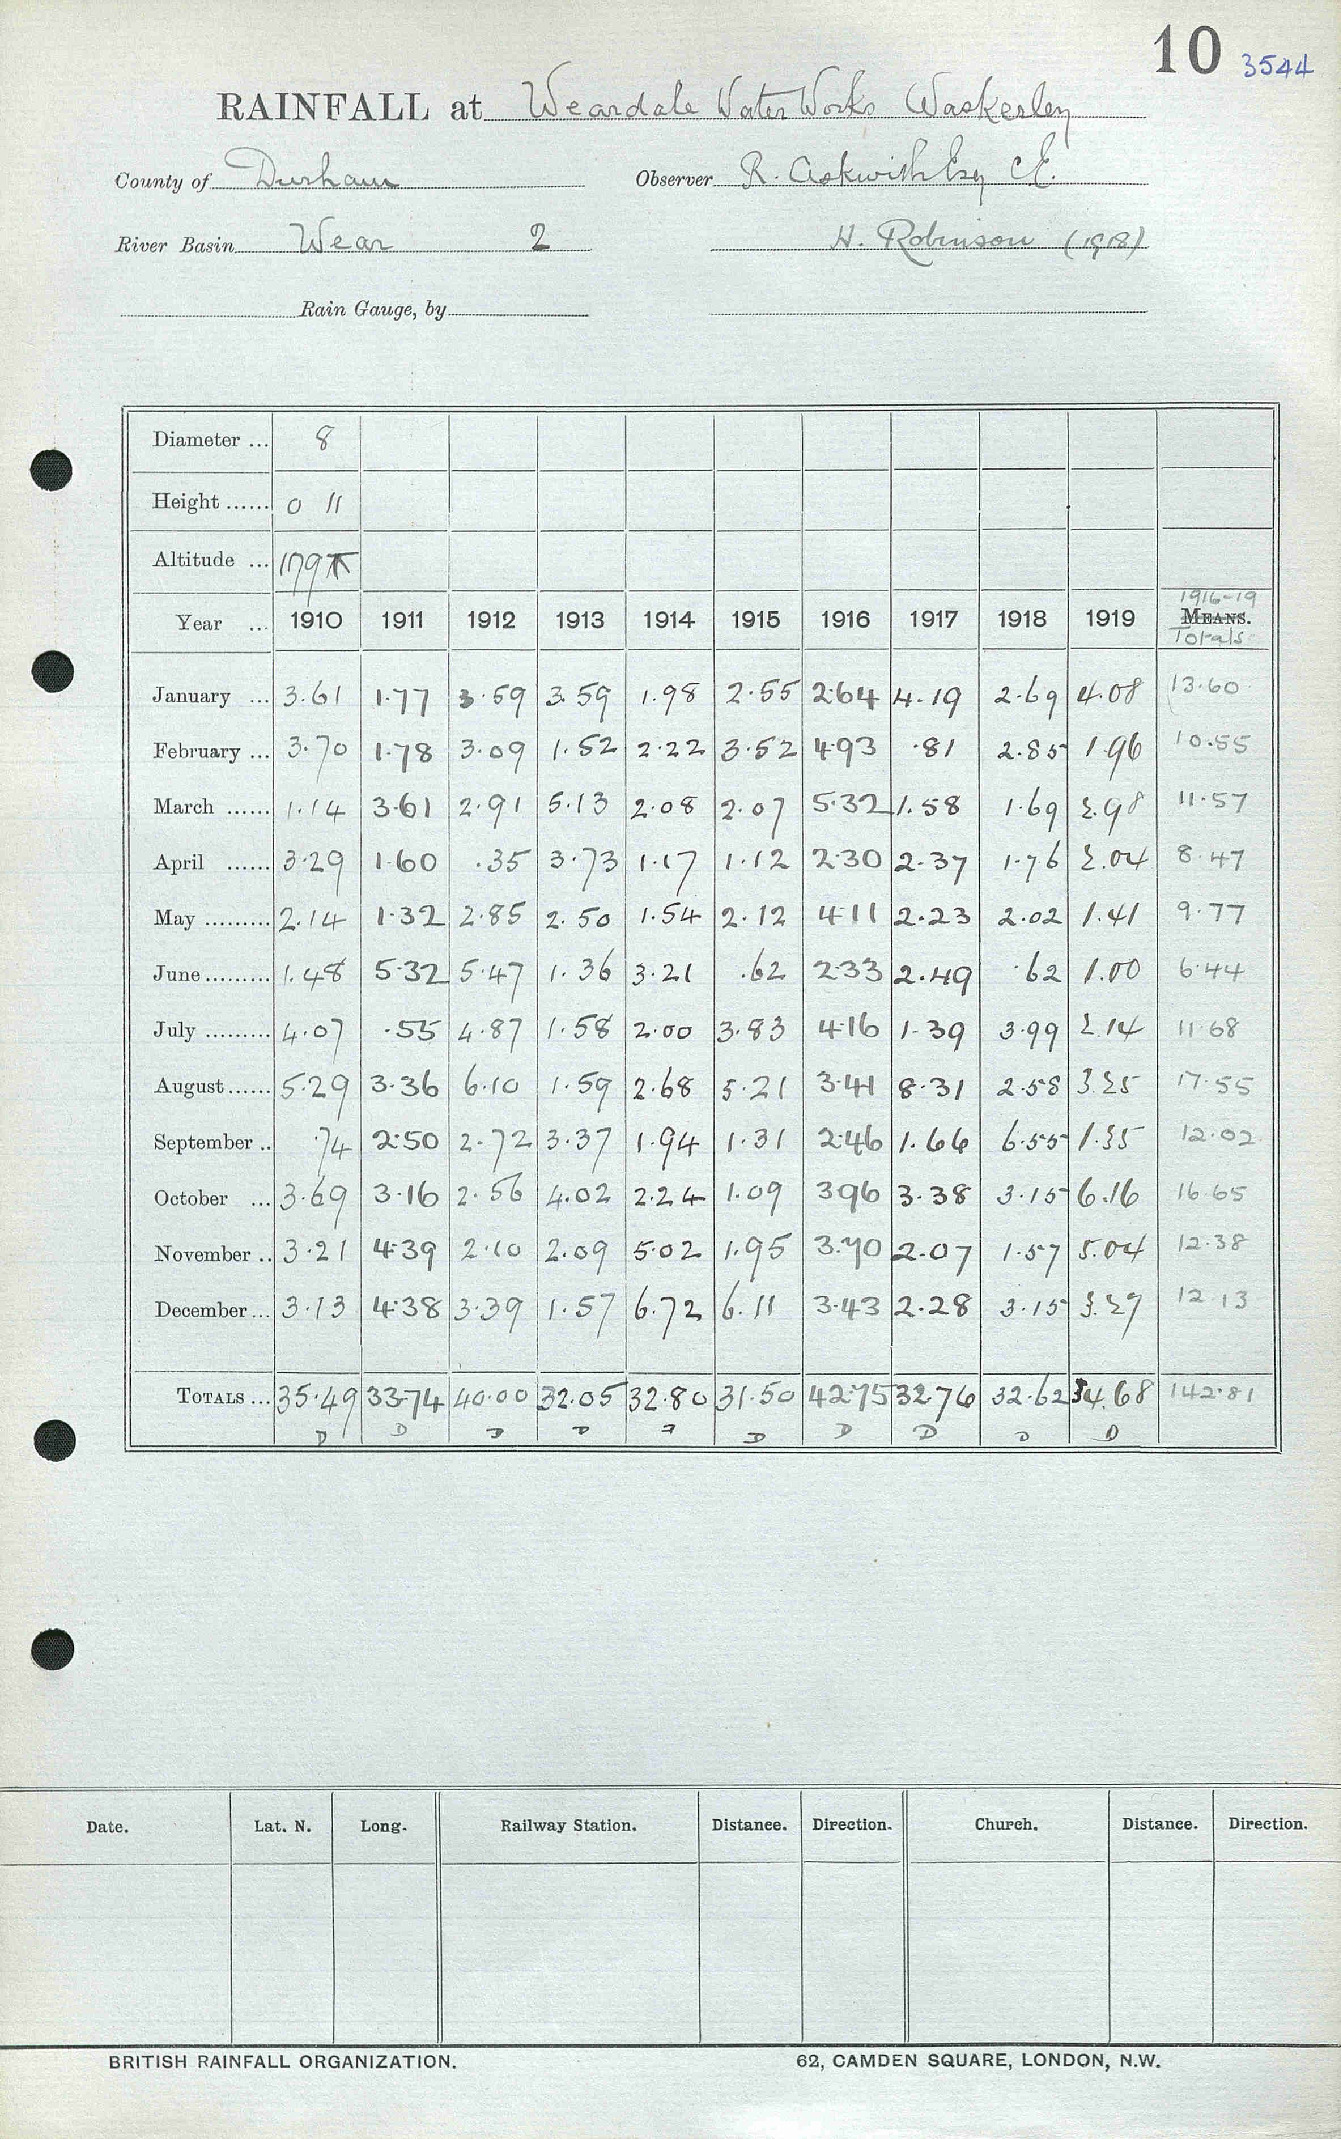 10 3544
RAINFALL at Weardale Water Works Waskerley
County of Durham Observer R. Askwith Esq C.E.
River Basin Wear 2 H. Robinson (1918)
Rain Gauge, by
Diameter ... 8
Height ...... 0 11
Altitude ...
1916-19
Year ... 1910 1911 1912 1913 1914 1915 1916 1917 1918 1919 MEANS.
Totals
January ... 3.61 1.77 3.59 3.59 1.98 2.55 2.64 4.19 2.69 4.08 13.60
February ... 3.70 1.78 3.09 1.52 2.22 3.52 4.93 .81 2.85 1.96 10.55
March ...... 1.14 3.61 2.91 5.13 2.08 2.07 5.32 1.58 1.69 2.98 11.57
April ...... 3.29 1.60 .35 3.73 1.17 1.12 2.30 2.37 1.76 2.04 8.47
May ......... 2.14 1.32 2.85 2.50 1.54 2.12 4.11 2.23 2.02 1.41 9.77
June ......... 1.48 5.32 5.47 1.36 3.21 .62 2.33 2.49 .62 1.00 6.44
July ......... 4.07 .55 4.87 1.58 2.00 3.83 4.16 1.39 3.99 2.14 11.68
August ...... 5.29 3.36 6.10 1.59 2.68 5.21 3.41 8.31 2.58 3.25 17.55
September .. .74 2.50 2.72 3.37 1.94 1.31 2.46 1.66 6.55 1.35 12.02
October ... 3.69 3.16 2.56 4.02 2.24 1.09 3.96 3.38 3.15 6.16 16.65
November .. 3.21 4.39 2.10 2.09 5.02 1.95 3.70 2.07 1.57 5.04 12.38
December ... 3.13 4.38 3.39 1.57 6.72 6.11 3.43 2.28 3.15 3.27 12.13
TOTALS ... 35.49 33.74 40.00 32.05 32.80 31.50 42.75 32.76 32.62 34.68 142.81
D D D D D D D D D D
Date. Lat. N. Long. Railway Station. Distance. Direction. Church. Distance. Direction.
BRITISH RAINFALL ORGANIZATION. 62, CAMDEN SQUARE, LONDON, N.W.